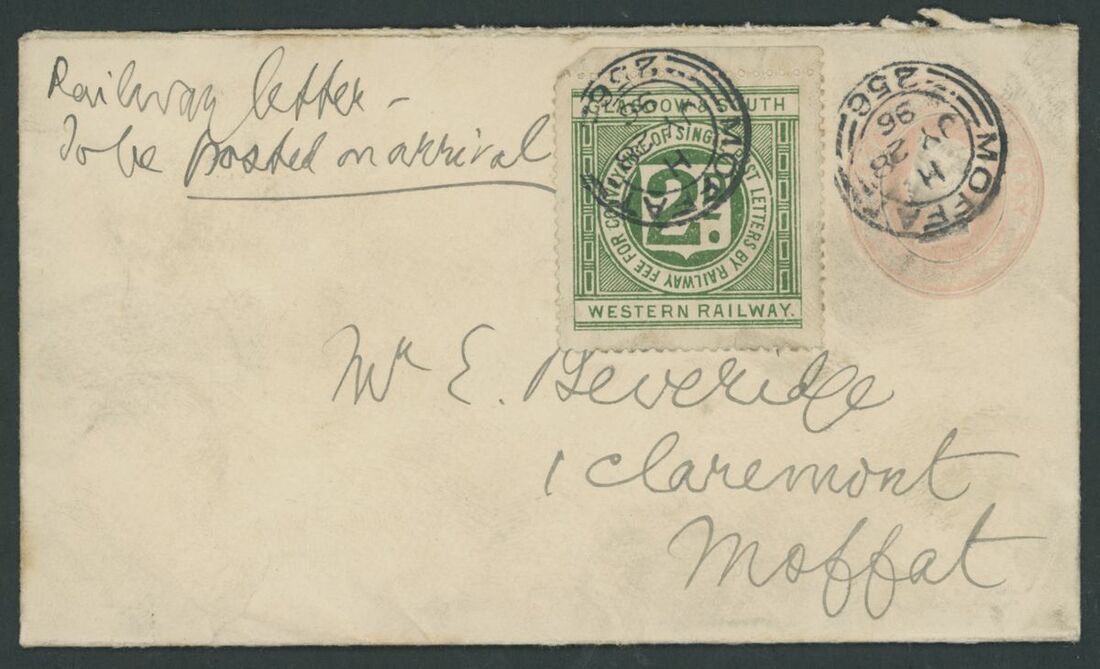 Railway letter –
To be posted on arrival
GLASGOW & SOUTH
FEE FOR CONVEYANCE OF SINGLE POST LETTERS BY RAILWAY
2D.
WESTERN RAILWAY.
MOFFAT
H
JY 28
96
256
MOFFAT
H
JY 28
96
256
Mr E. Beveridge
1 Claremont
Moffat